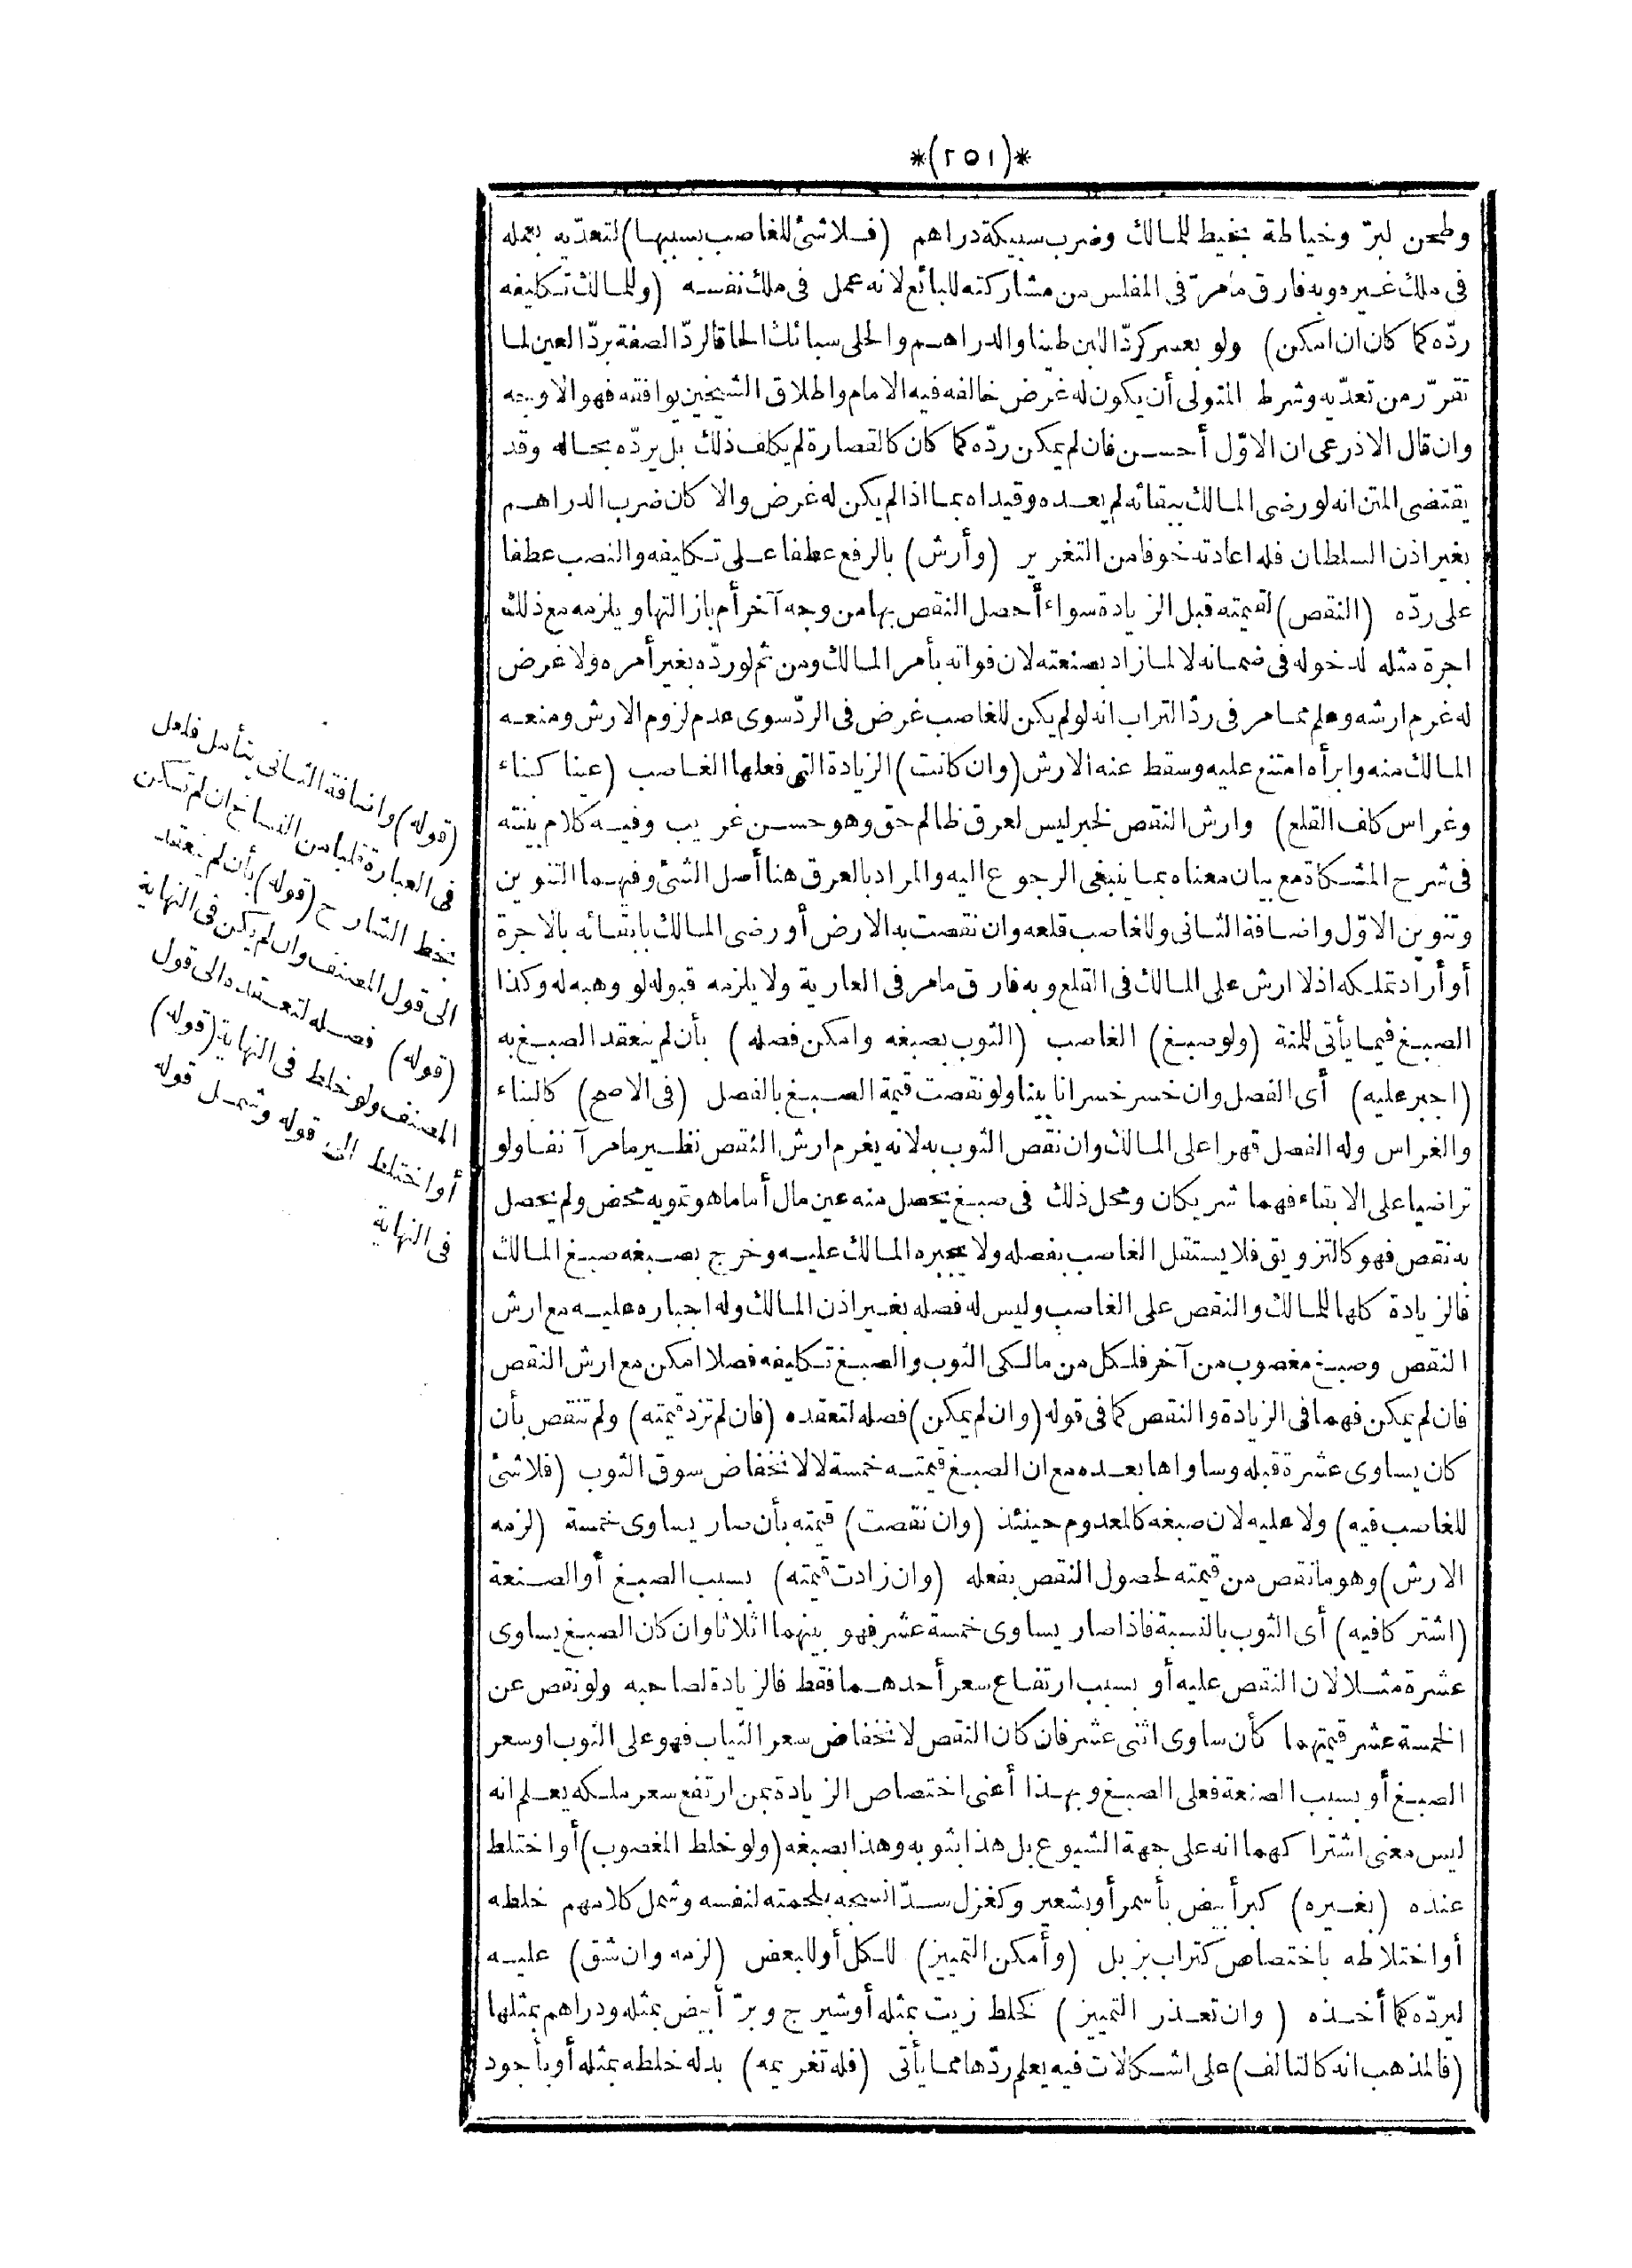 *(٢٥١)*
وطحن لبرّ وخياطة بخيط للمالك وضرب سبيكة دراهم (فلا شئ للغاصب بسببها) لتعدّيه بعمله
فى ملك غيره وبه فارق مامرّ فى المفلس من مشاركته للبائع لانه عمل فى ملك نفسه (وللمالك تكليفه
ردّه كما كان ان امكن) ولو بعسر كردّ اللبن طينا والدراهم والحلى سبائك الحاقا لردّ الصفة بردّ العين لما
تقرّر من تعدّيه وشرط المتولى أن يكون له غرض خالفه فيه الامام واطلاق الشيخين يوافقه فهو الاوجه
وان قال الاذرعى ان الاوّل أحسن فان لم يمكن ردّه كما كان كالقصارة لم يكلف ذلك بل يردّه بحاله وقد
يقتضى المتن انه لو رضى المالك ببقائه لم يعده وقيداه بما اذا لم يكن له غرض والا كان ضرب الدراهم
بغير اذن السلطان فله اعادته خوفا من التغرير (وأرش) بالرفع عطفا على تكليفه والنصب عطفا
على ردّه (النقص) لقيمته قبل الزيادة سواء أحصل النقص بها من وجه آخر أم بازالتها ويلزمه مع ذلك
اجرة مثله لدخوله فى ضمانه لا لما زاد بصنعته لان فواته بأمر المالك ومن ثم لو ردّه بغير أمره ولا غرض
له غرم ارشه وعلم مما مر فى ردّ التراب انه لو لم يكن للغاصب غرض فى الردّ سوى عدم لزوم الارش ومنعه
المالك منه وابرأه امتنع عليه وسقط عنه الارش (وان كانت) الزيادة التى فعلها الغاصب (عينا كبناء
وغراس كلف القلع) وارش النقص لخبر ليس لعرق ظالم حق وهو حسن غريب وفيه كلام بينته
فى شرح المشكاة مع بيان معناه بما ينبغى الرجوع اليه والمراد بالعرق هنا أصل الشئ وفيهما التنوين
وتنوين الاوّل واضافة الثانى وللغاصب قلعه وان نقصت به الارض أو رضى المالك بابقائه بالاجرة
أو أراد تملكه اذلا ارش على المالك فى القلع وبه فارق مامر فى العارية ولا يلزمه قبوله لو وهبه له وكذا
الصبغ فيما يأتى للمنة (ولو صبغ) الغاصب (الثوب بصبغه وامكن فصله) بأن لم ينعقد الصبغ به
(اجبر عليه) أى الفصل وان خسر خسرانا بينا ولو نقصت قيمة الصبغ بالفصل (فى الاصح) كالبناء
والغراس وله الفصل قهرا على المالك وان نقص الثوب به لانه يغرم ارش النقص نظير مامر آنفا ولو
تراضيا على الابقاء فهما شريكان ومحل ذلك فى صبغ يحصل منه عين مال أما ما هو تمويه محض ولم يحصل
به نقص فهو كالتزويق فلا يستقل الغاصب بفصله ولا يجبره المالك عليه وخرج بصبغه صبغ المالك
فالزيادة كلها للمالك والنقص على الغاصب وليس له فصله بغير اذن المالك وله اجباره عليه مع ارش
النقص وصبغ مغصوب من آخر فلكل من مالكى الثوب والصبغ تكليفه فصلا امكن مع ارش النقص
فان لم يمكن فهما فى الزيادة والنقص كما فى قوله (وان لم يمكن) فصله لتعقده (فان لم تزد قيمته) ولم تنقص بأن
كان يساوى عشرة قبله وساواها بعده مع ان الصبغ قيمته خمسة لا لانخفاض سوق الثوب (فلا شئ
للغاصب فيه) ولا عليه لان صبغه كالمعدوم حينئذ (وان نقصت) قيمته بأن صار يساوى خمسة (لزمه
الارش) وهو ما نقص من قيمته لحصول النقص بفعله (وان زادت قيمته) بسبب الصبغ أو الصنعة
(اشتركا فيه) أى الثوب بالنسبة فاذا صار يساوى خمسة عشر فهو بينهما اثلاثا وان كان الصبغ يساوى
عشرة مثلا لان النقص عليه أو بسبب ارتفاع سعر أحدهما فقط فالزيادة لصاحبه ولو نقص عن
الخمسة عشر قيمتهما كأن ساوى اثنى عشر فان كان النقص لانخفاض سعر الثياب فهو على الثوب او سعر
الصبغ أو بسبب الصنعة فعلى الصبغ وبهذا أعنى اختصاص الزيادة بمن ارتفع سعر ملكه يعلم انه
ليس معنى اشتراكهما انه على جهة الشيوع بل هذا بثوبه وهذا بصبغه (ولو خلط المغصوب) أو اختلط
عنده (بغيره) كبر أبيض بأسمر أو بشعير وكغزل سدّا نسجه بلحمته لنفسه وشمل كلامهم خلطه
أو اختلاطه باختصاص كتراب بزبل (وأمكن التمييز) للكل أو للبعض (لزمه وان شق) عليه
ليردّه كما أخذه (وان تعذر التمييز) كخلط زيت بمثله أو شيرج وبرّ أبيض بمثله ودراهم بمثلها
(فالمذهب انه كالتالف) على اشكالات فيه يعلم ردّها مما يأتى (فله تغريمه) بدله خلطه بمثله أو بأجود
(قوله) واضافة الثانى يتأمل فلعل
فى العبارة قلبا من النساخ ان لم تكن
بخط الشارح (قوله) بأن لم ينعقد
الى قول المصنف وان لم يكن فى النهاية
(قوله) فصله لتعقده الى قول
المصنف ولو خلط فى النهاية (قوله)
أو اختلط الى قوله وشمل قوله
فى النهاية